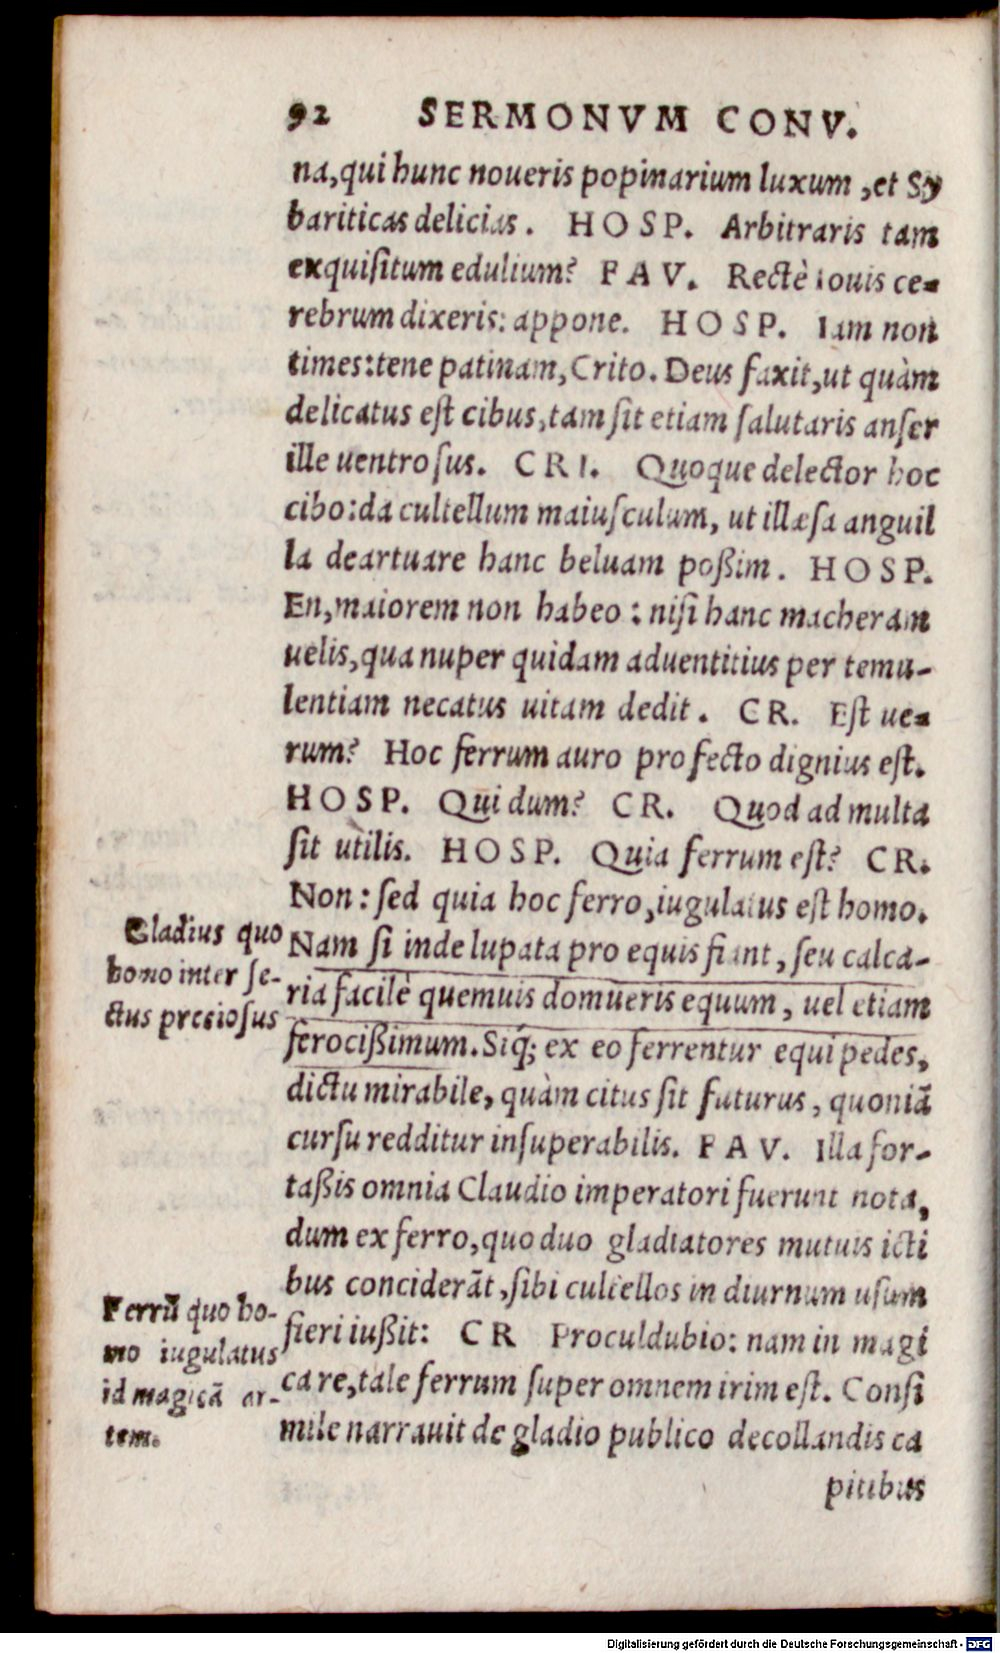 92 SERMONVM CONV.
na, qui hunc noueris popinarium luxum, et Sy
bariticas delicias. HOSP. Arbitraris tam
exquiſitum edulium? FAV. Rectè Iouis ce-
rebrum dixeris: appone. HOSP. Iam non
times: tene patinam, Crito. Deus faxit, ut quàm
delicatus eſt cibus, tam ſit etiam ſalutaris anſer
ille uentroſus. CRI. Quoque delector hoc
cibo: da cultellum maiuſculum, ut illæſa anguil
la deartuare hanc beluam poßim. HOSP.
En, maiorem non habeo: niſi hanc macheram
uelis, qua nuper quidam aduentitius per temu-
lentiam necatus uitam dedit. CR. Eſt ue-
rum? Hoc ferrum auro profecto dignius eſt.
HOSP. Qui dum? CR. Quod ad multa
ſit utilis. HOSP. Quia ferrum eſt? CR.
Non: ſed quia hoc ferro, iugulatus eſt homo.
Nam ſi inde lupata pro equis fiant, ſeu calca-
ria facilè quemuis domueris equum, uel etiam
ferocißimum. Siq́; ex eo ferrentur equi pedes,
dictu mirabile, quàm citus ſit futurus, quoniã
curſu redditur inſuperabilis. FAV. Illa for-
taßis omnia Claudio imperatori fuerunt nota,
dum ex ferro, quo duo gladiatores mutuis icti
bus conciderãt, ſibi cultellos in diurnum uſum
fieri iußit: CR Proculdubio: nam in magi
ca re, tale ferrum ſuper omnem irim eſt. Conſi
mile narrauit de gladio publico decollandis ca
pitibus
Gladius quo
homo inter ſe-
ctus preciosus
Ferrũ quo ho-
mo iugulatus
id magicã ar-
tem.
Digitalisierung gefördert durch die Deutsche Forschungsgemeinschaft - DFG